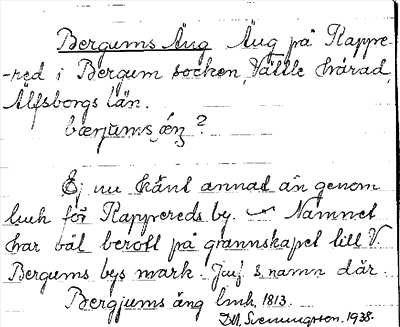 Bergums Äng Äng på Rappre-
-red i Bergum socken, Vättle härad,
Älfsborgs län.
bærjums ǽŋ ?
Ej nu känt annat än genom
lmk för Rappereds by. — Namnet
har väl berott på grannskapet till V.
Bergums bys mark. Jmf. s. namn där.
Bergjums äng lmk. 1813.
D.M. Svenungsson. 1938.